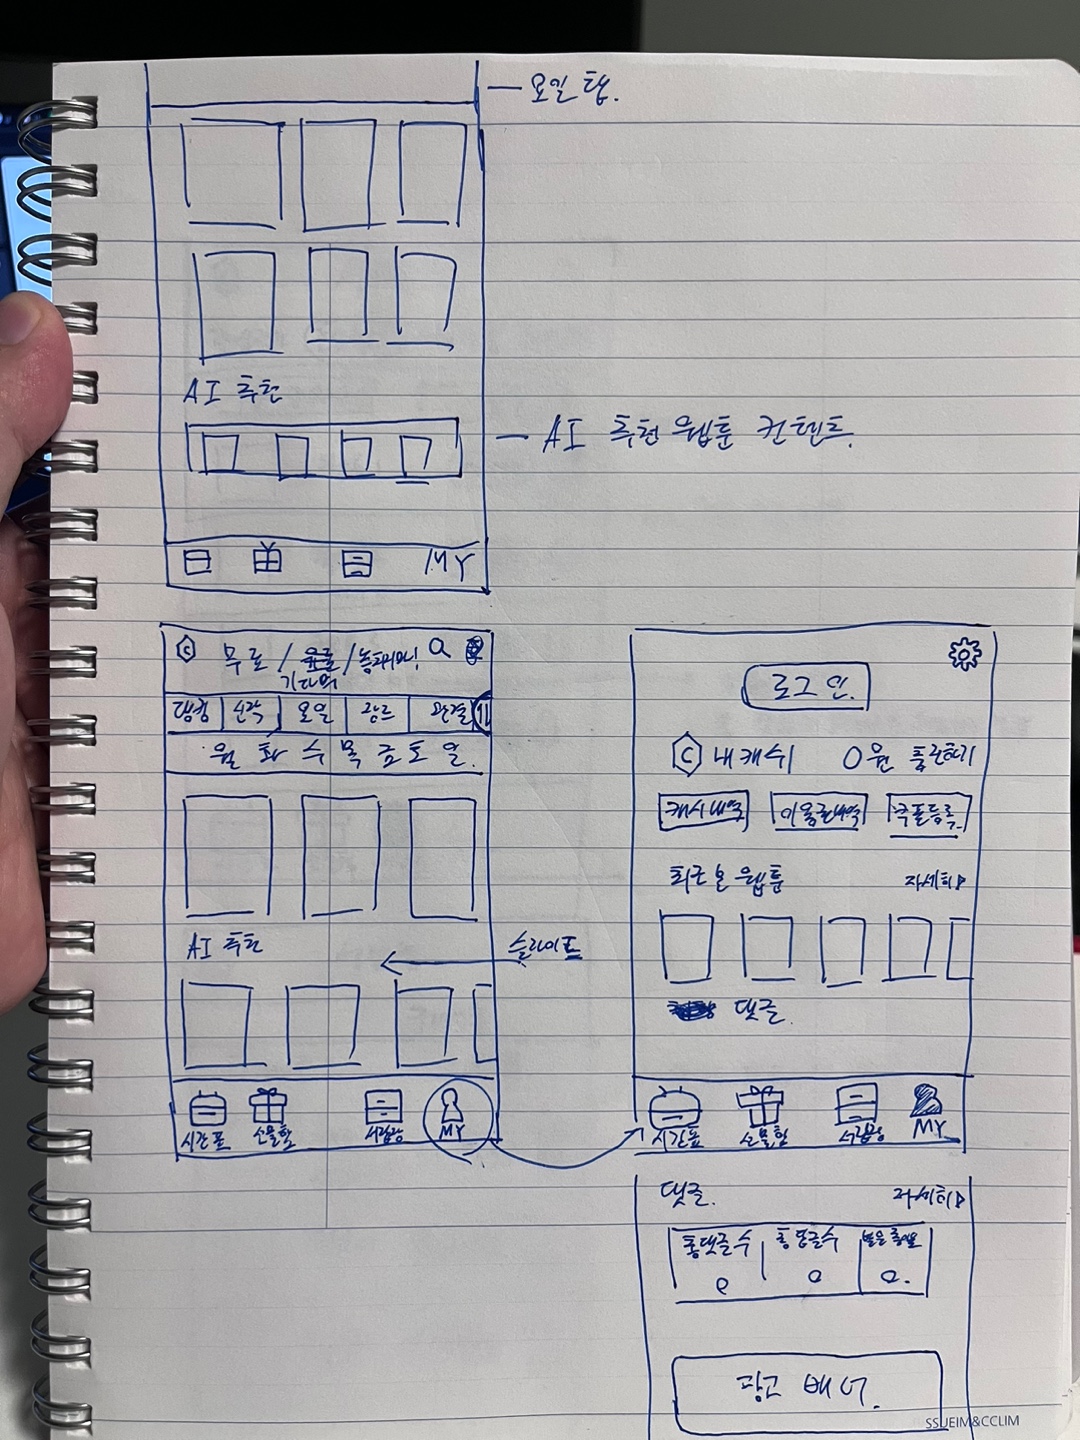 요일 탭.
AI 추천
AI 추천 웹툰 컨텐츠.
MY
C 무료 / / 놓치마니!
기다무
랭킹 신작 요일 장르 완결
월 화 수 목 금 토 일.
AI 추천
슬라이드
시간표 선물함 서랍장 MY
로그인.
C 내 캐쉬 0원 충전하기
캐시내역 이용권내역 쿠폰등록
최근 본 웹툰 자세히
댓글.
시간표 선물함 서랍장 MY
댓글. 자세히
총댓글수 총답글수
0 0 0.
광고 배너.
SSUEIM&CCLIM